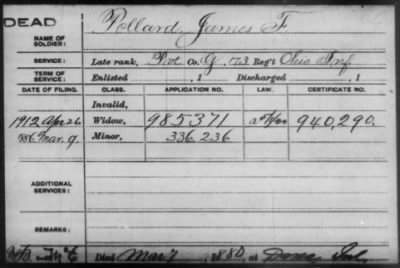 DEAD
NAME OF SOLDIER: Pollard, James F.
SERVICE: Late rank, Pvt Co. G, 73 Reg't Ohio Inf.
TERM OF SERVICE: Enlisted , 1 Discharged , 1
DATE OF FILING. CLASS. APPLICATION NO. LAW. CERTIFICATE NO.
Invalid,
1912 Apr 26 Widow, 985371 940,290.
Mar. 9. Minor, 336,236
ADDITIONAL SERVICES:
REMARKS:
Died Mar 7, 1880, at